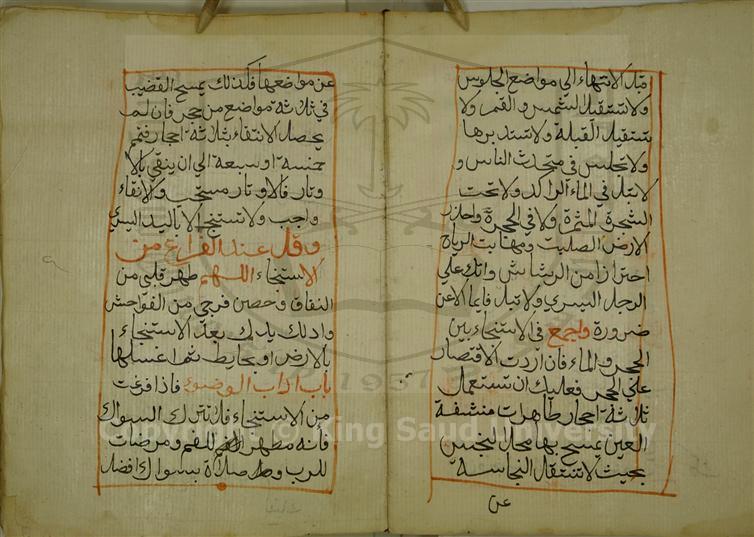 قبل الانتهاء الي مواضع الجلوس
ولا تستقبل الشمس والقمر ولا
تستقبل القبلة ولا تستدبرها
ولا تجلس في متحدث الناس و
لا تبل في الماء الراكد ولا تحت
الشجرة المثمرة ولا في الحجرة واحذر
الارض الصليت ومهابت الرياح
احترازا من الرشاش واتك علي
الرجل اليسري ولا تبل قايما الا عن
ضرورة واجمع في الاستنجاء بين
الحجر والماء فان اردت الاقتصار
علي الحجر فعليك ان تستعمل
ثلاثة احجار طاهرات منشفة
العين تمسح بها محال النجس
بحيث لا تنتقل النجاسة
عن
عن مواضعها فكذلك تمسح القضيب
في ثلاثة مواضع من حجر فان لم
يحصل الانقاء بثلاثة احجار فتم
خمسة او سبعة الي ان ينقي بالا
وتار فالاوتار مستحب والانقاء
واجب ولا تستنج الا باليد اليسري
وقل عند الفراغ من
الاستنجاء اللهم طهر قلبي من
النفاق وحصن فرجي من الفواحش
وادلك يدك بعد الاستنجاء
بالارض او بحايط ثم اغسلها
باب اداب الوضوء فاذا فرغت
من الاستنجاء فلا تترك السواك
فانه مطهر للفم ومرضات
للرب وصلاة بسواك افضل
Copyright © King Saud University
1957